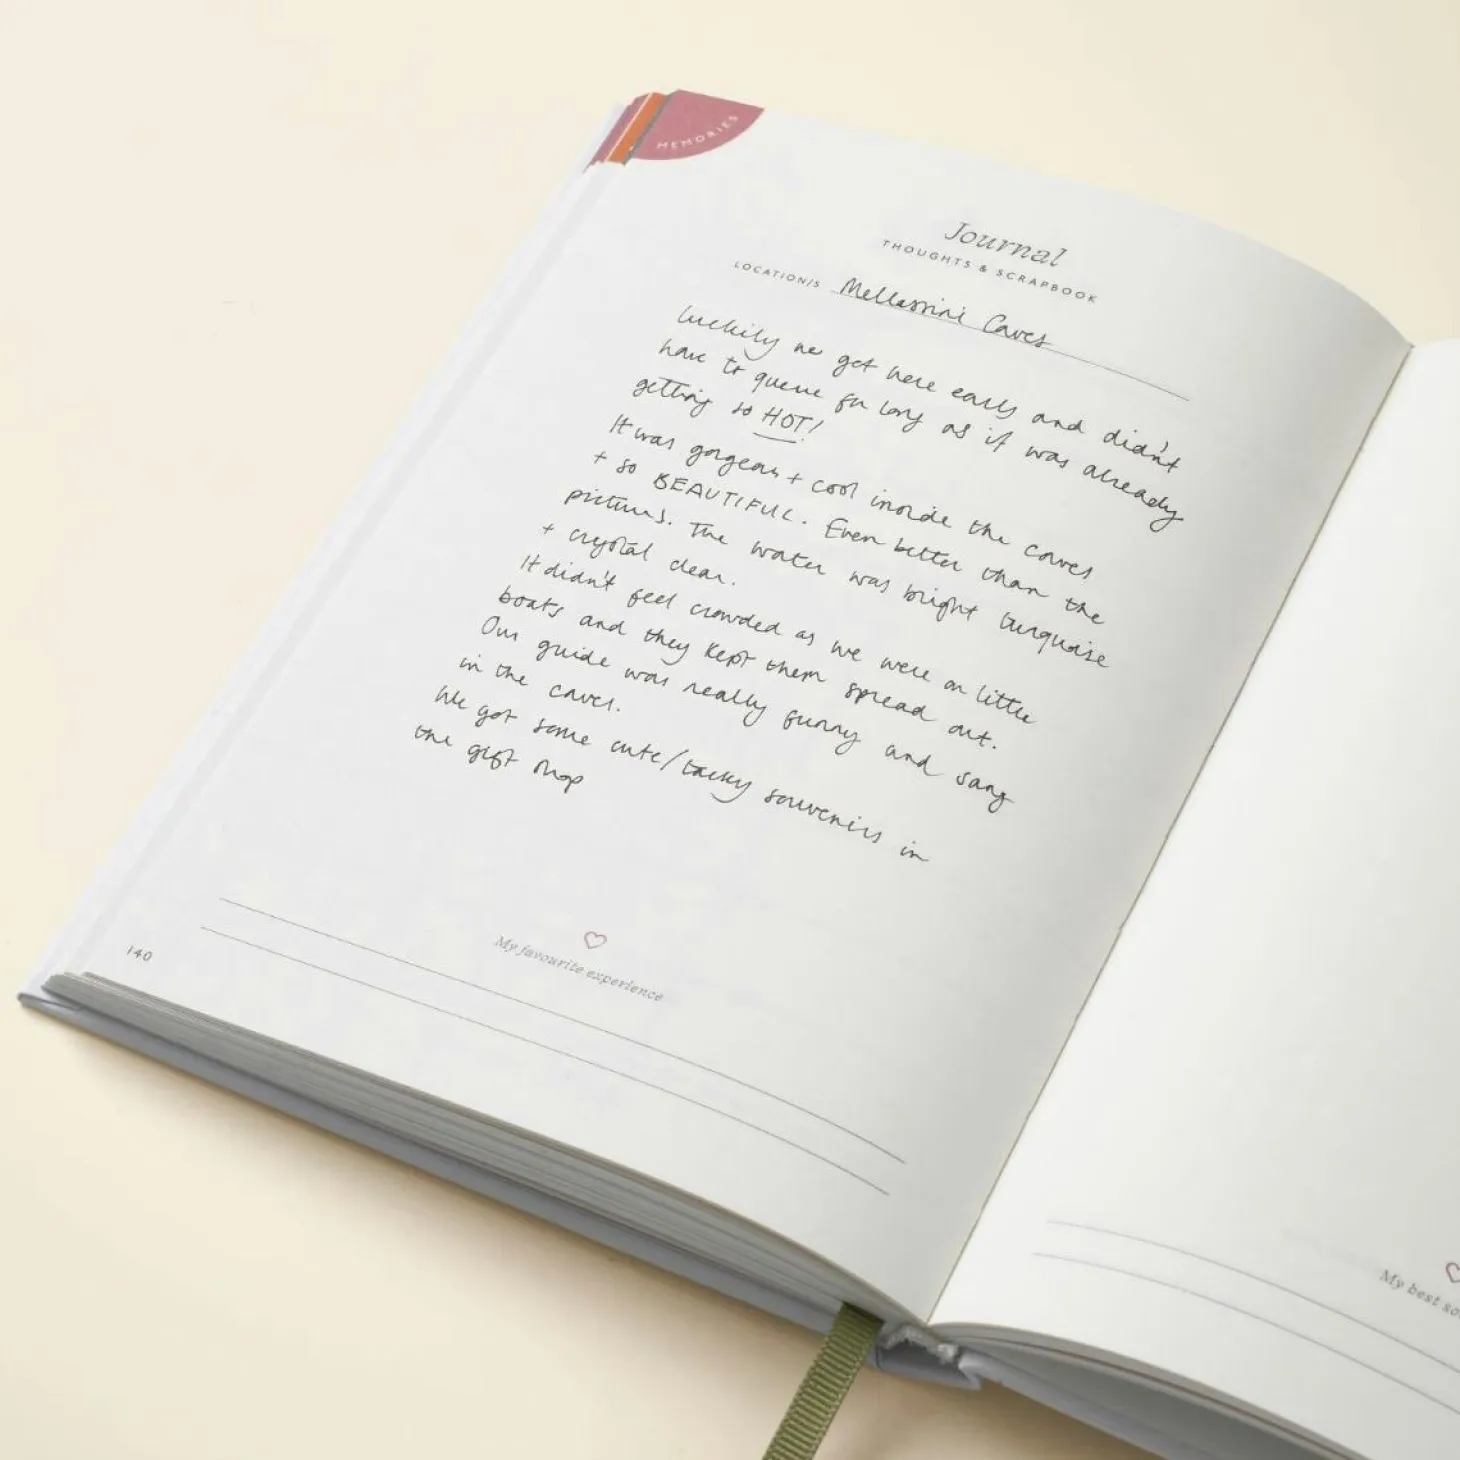 MEMORIES
Journal
THOUGHTS & SCRAPBOOK
LOCATION/S Mellassini Caves
Luckily we got here early and didn't
have to queue for long as it was already
getting so HOT!
It was gorgeous + cool inside the caves
+ so BEAUTIFUL. Even better than the
pictures. The water was bright turquoise
+ crystal clear.
It didn't feel crowded as we were on little
boats and they kept them spread out.
Our guide was really funny and sang
in the caves.
We got some cute/tacky souvenirs in
the gift shop
My favourite experience
140
My best so